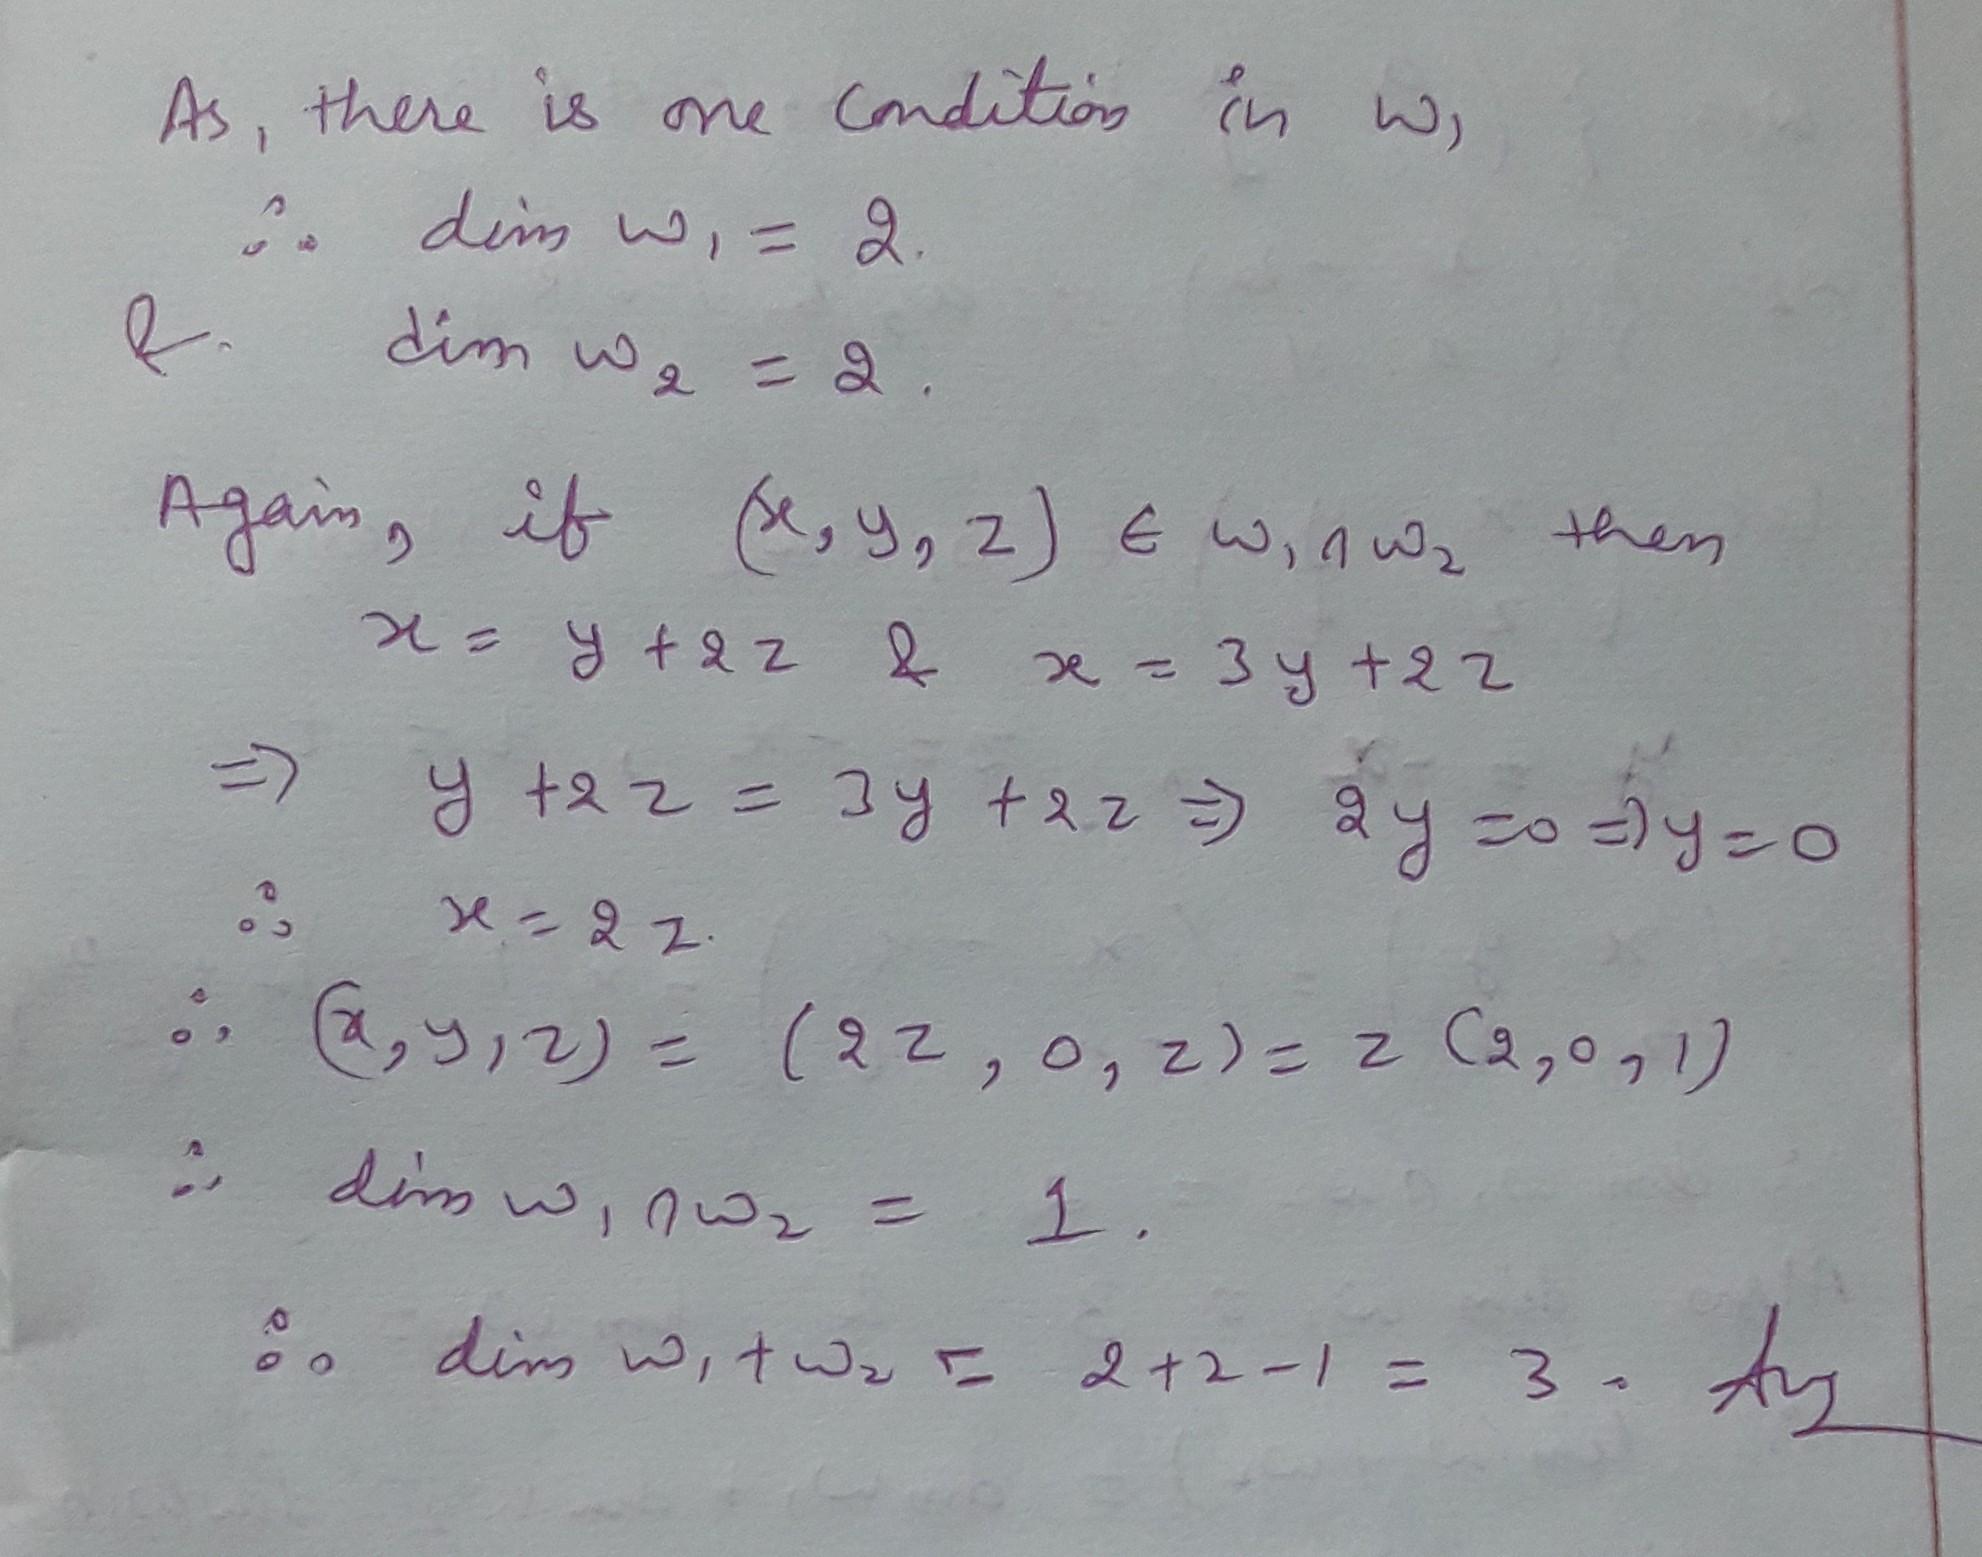 As, there is one condition in W₁
∴ dim W₁ = 2.
&. dim W₂ = 2.
Again, if (x, y, z) ∈ W₁ ∩ W₂ then
x = y + 2z & x = 3y + 2z
⇒ y + 2z = 3y + 2z ⇒ 2y = 0 ⇒ y = 0
∴ x = 2z.
∴ (x, y, z) = (2z, 0, z) = z (2, 0, 1)
∴ dim W₁ ∩ W₂ = 1.
∴ dim W₁ + W₂ = 2 + 2 - 1 = 3. Ans